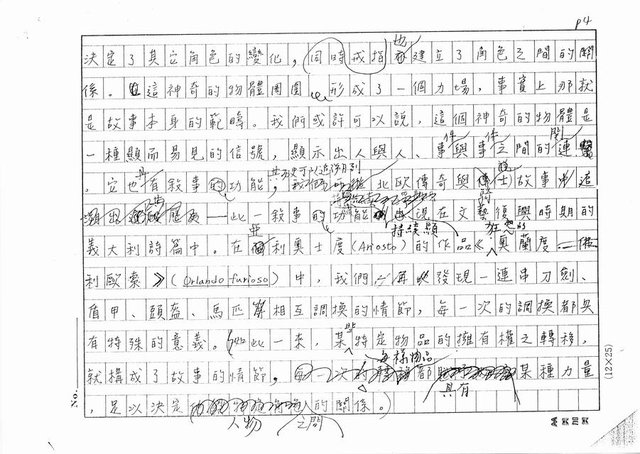 p4
決定了其它角色的變化，同時戒指也建立了角色之間的關
係。這神奇的物體周圍形成了一個力場，事實上那就
是故事本身的範疇。我們或許可以說，這個神奇的物體是
一種顯而易見的信號，顯示出人與人、事件與事件之間的連
，它也具有敘事的功能，北歐傳奇與騎士故事
此一敘事的功能持續出現在文藝復興時期的
義大利詩篇中。在亞利奧士度（Ariosto）的作品《奧蘭度
利歐索》（Orlando furioso）中，我們再次發現一連串刀劍、
盾甲、頭盔、馬匹相互調換的情節，每一次的調換都具
有特殊的意義。如此一來，某些特定物品的擁有權之轉移，
就構成了故事的情節，每樣物品都具有某種力量
，足以決定人物之間的關係。
No.
(12×25)